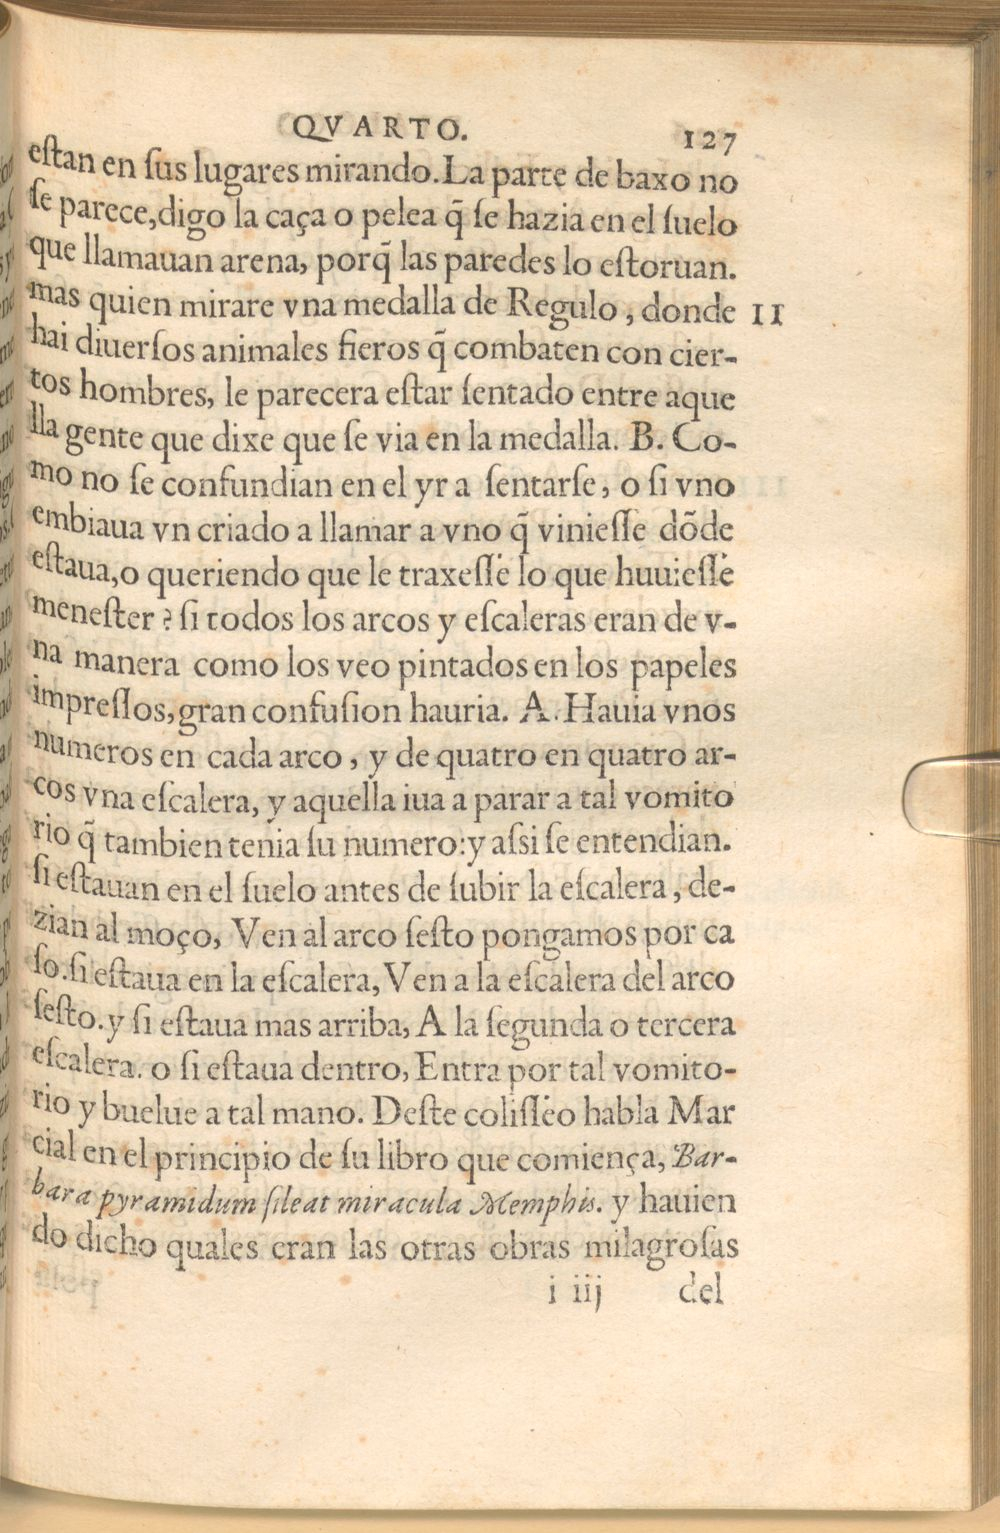 QVARTO.
127
eſtan en ſus lugares mirando. La parte de baxo no
ſe parece, digo la caça o pelea q̃ ſe hazia en el ſuelo
que llamauan arena, porq̃ las paredes lo eſtoruan.
mas quien mirare vna medalla de Regulo, donde 11
hai diuerſos animales fieros q̃ combaten con cier-
tos hombres, le parecera eſtar ſentado entre aque
lla gente que dixe que ſe via en la medalla. B. Co-
mo no ſe confundian en el yr a ſentarſe, o ſi vno
embiaua vn criado a llamar a vno q̃ vinieſſe dõde
eſtaua, o queriendo que le traxeſſe lo que huuieſſe
meneſter? ſi todos los arcos y eſcaleras eran de v-
na manera como los veo pintados en los papeles
impreſſos, gran confuſion hauria. A. Hauia vnos
numeros en cada arco, y de quatro en quatro ar-
cos vna eſcalera, y aquella iua a parar a tal vomito
rio q̃ tambien tenia ſu numero: y aſsi ſe entendian.
ſi eſtauan en el ſuelo antes de ſubir la eſcalera, de-
zian al moço, Ven al arco ſeſto pongamos por ca
ſo. ſi eſtaua en la eſcalera, Ven a la eſcalera del arco
ſeſto. y ſi eſtaua mas arriba, A la ſegunda o tercera
eſcalera. o ſi eſtaua dentro, Entra por tal vomito-
rio y buelue a tal mano. Deſte coliſſeo habla Mar
cial en el principio de ſu libro que comiença, Bar-
bara pyramidum ſileat miracula Memphis. y hauien
do dicho quales eran las otras obras milagroſas
i iij del